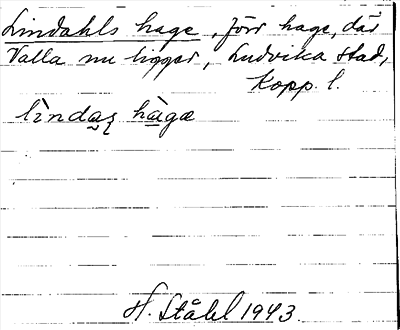 Lindahls hage, förr hage, där
Valla nu ligger, Ludvika stad,
Kopp. l.
lìndaʂ hàga
H. Ståhl 1943.